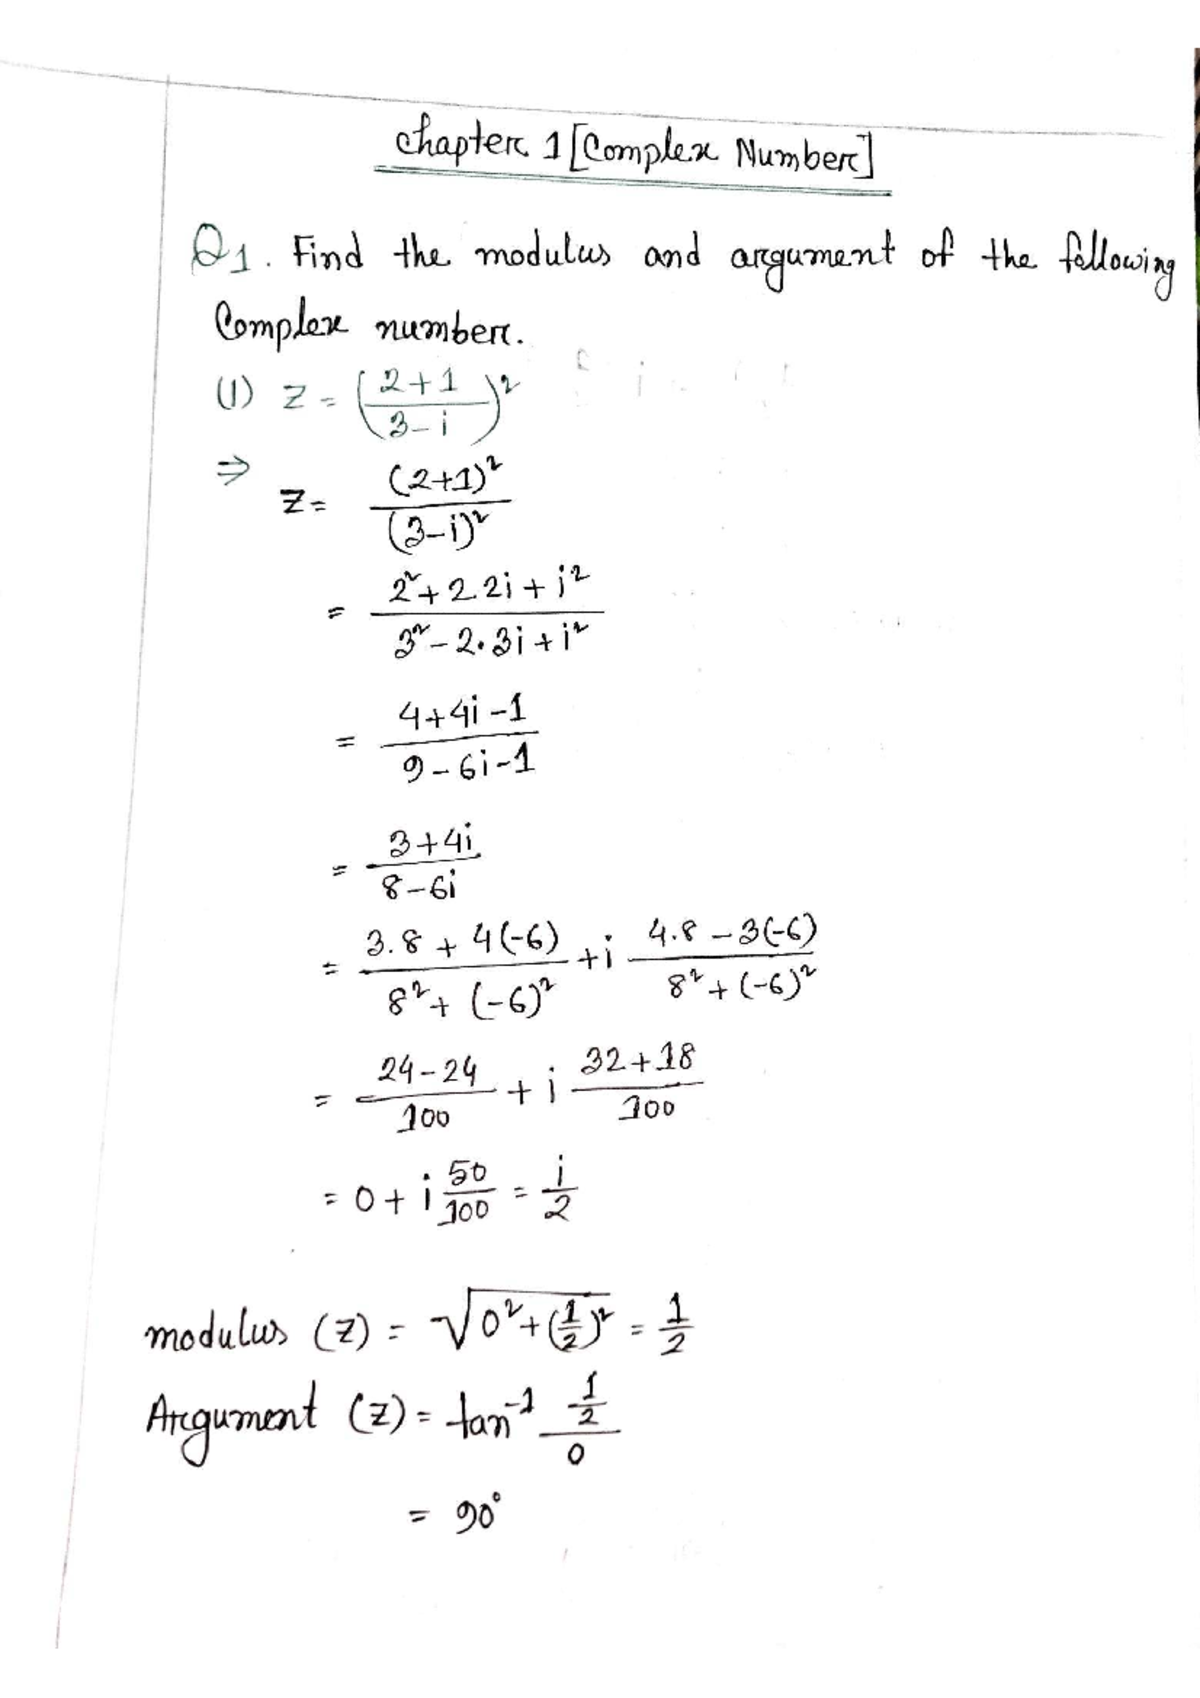 Chapter 1 [Complex Number]
Q1. Find the modulus and argument of the following
Complex number.
(1) z = ((2+1)/(3-i))²
⇒ z = (2+1)²/(3-i)²
= (2²+2.2i+i²)/(3²-2.3i+i²)
= (4+4i-1)/(9-6i-1)
= (3+4i)/(8-6i)
= (3.8+4(-6))/(8²+(-6)²) + i (4.8-3(-6))/(8²+(-6)²)
= (24-24)/100 + i (32+18)/100
= 0 + i 50/100 = i/2
modulus (z) = √(0²+(1/2)²) = 1/2
Argument (z) = tan⁻¹ (1/2)/0
= 90°